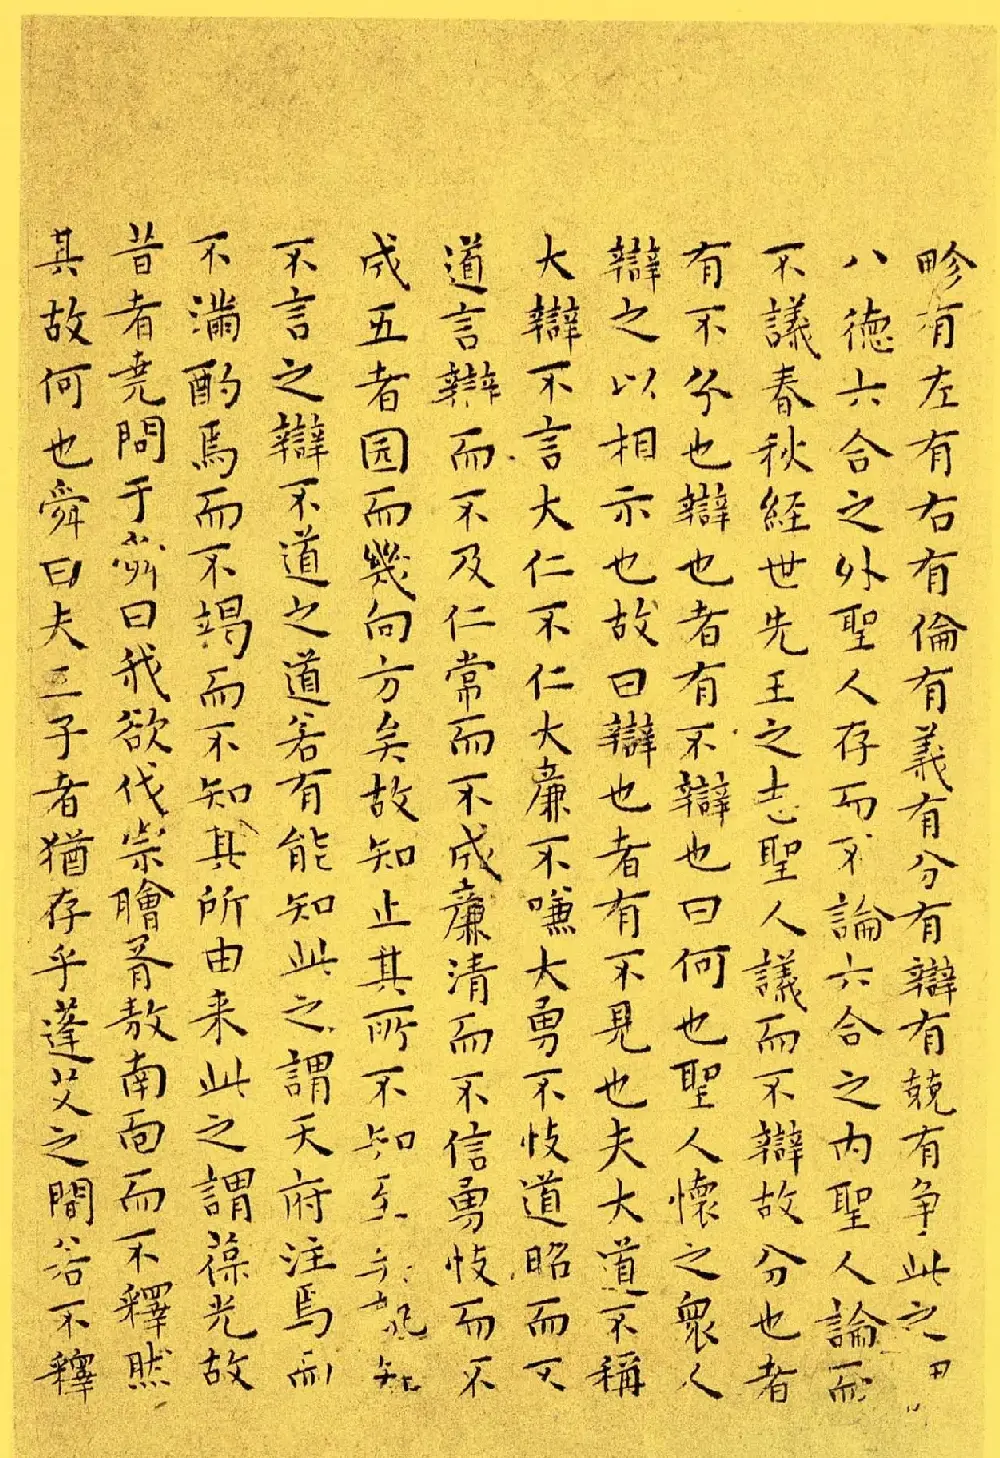 畛有左有右有倫有義有分有辯有競有争此之
八德六合之外聖人存而不論六合之内聖人論而
不議春秋経世先王之志聖人議而不辯故分也者
有不分也辯也者有不辯也曰何也聖人懷之衆人
辯之以相示也故曰辯也者有不見也夫大道不稱
大辯不言大仁不仁大廉不嗛大勇不忮道昭而不
道言辯而不及仁常而不成廉清而不信勇忮而不
成五者园而幾向方矣故知止其所不知至
不言之辯不道之道若有能知此之謂天府注焉而
不滿酌焉而不竭而不知其所由来此之謂葆光故
昔者尭問于舜曰我欲伐崇膾胥敖南面而不釋然
其故何也舜曰夫三子者猶存乎蓬艾之間若不釋